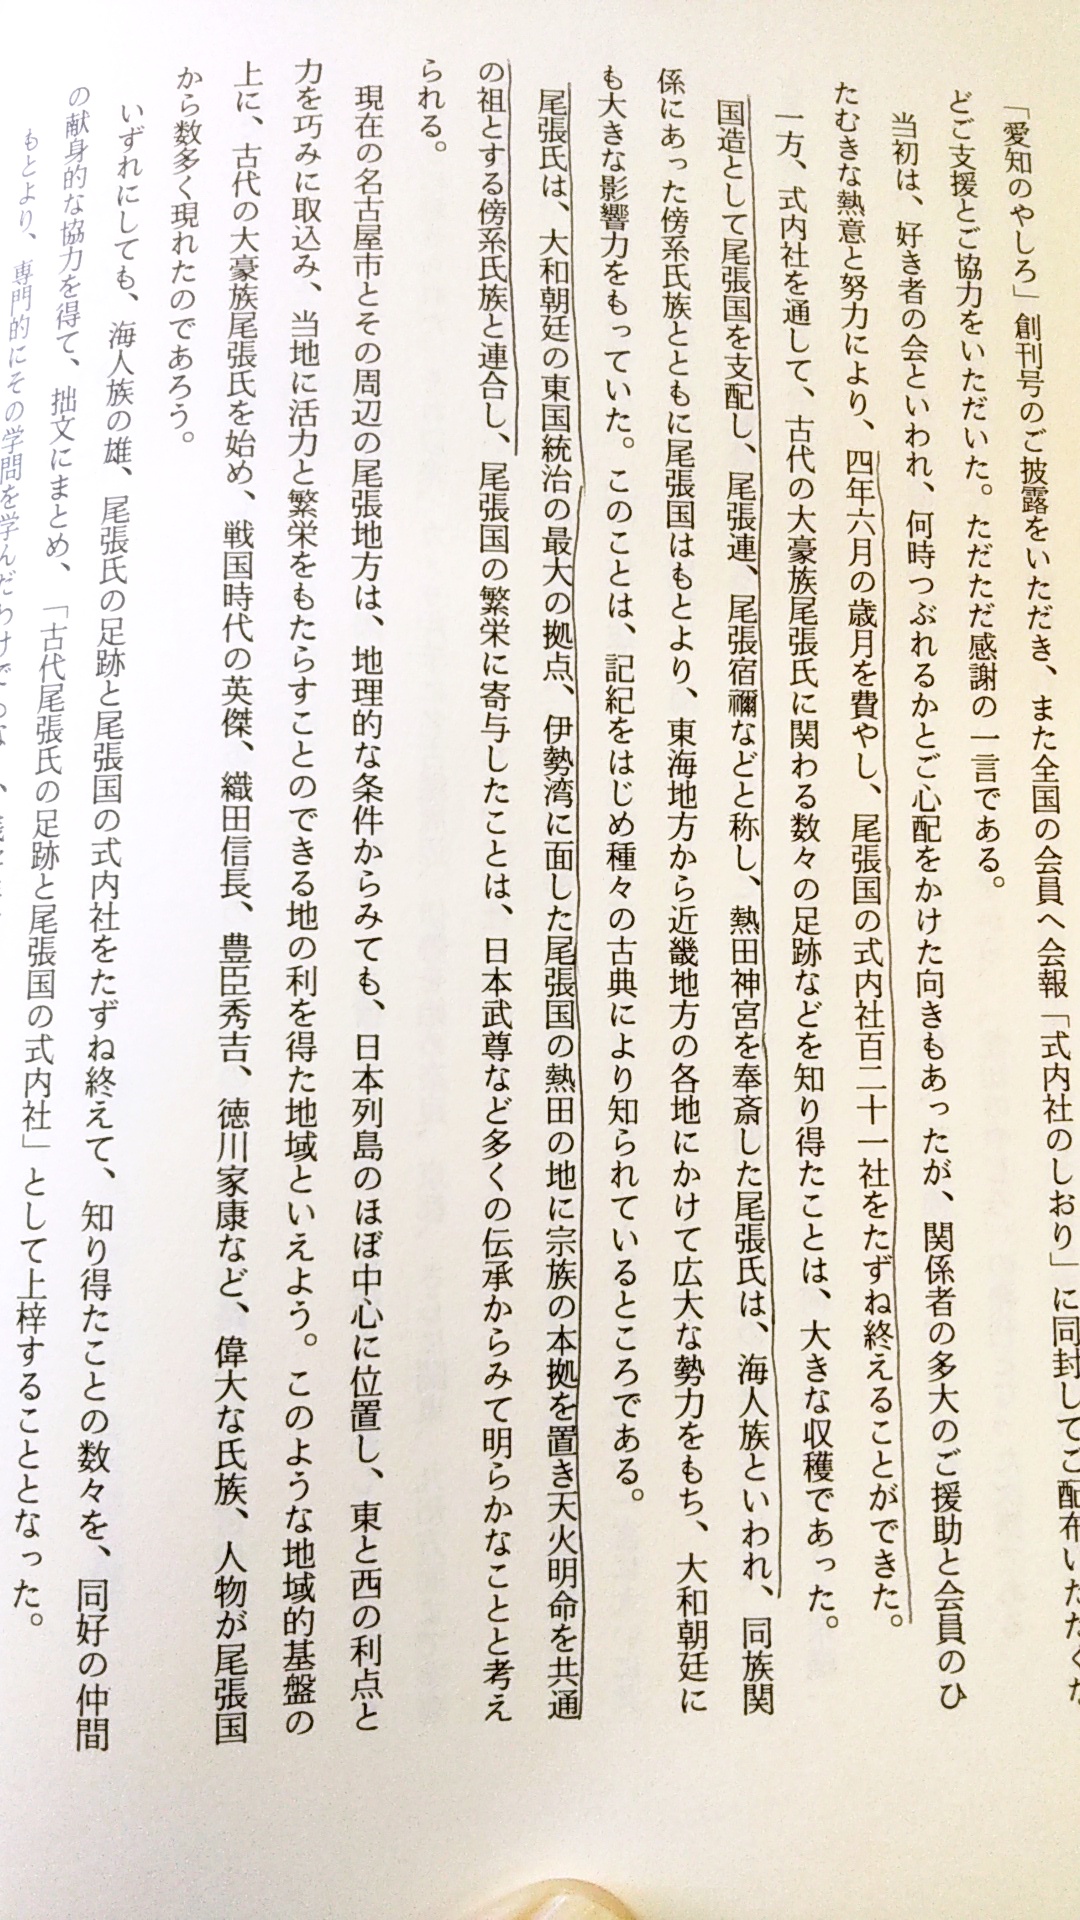 「愛知のやしろ」創刊号のご披露をいただき、また全国の会員へ会報「式内社のしおり」に同封してご配布いただくな
どご支援とご協力をいただいた。ただただ感謝の一言である。
当初は、好き者の会といわれ、何時つぶれるかとご心配をかけた向きもあったが、関係者の多大のご援助と会員のひ
たむきな熱意と努力により、四年六月の歳月を費やし、尾張国の式内社百二十一社をたずね終えることができた。
一方、式内社を通して、古代の大豪族尾張氏に関わる数々の足跡などを知り得たことは、大きな収穫であった。
国造として尾張国を支配し、尾張連、尾張宿禰などと称し、熱田神宮を奉斎した尾張氏は、海人族といわれ、同族関
係にあった傍系氏族とともに尾張国はもとより、東海地方から近畿地方の各地にかけて広大な勢力をもち、大和朝廷に
も大きな影響力をもっていた。このことは、記紀をはじめ種々の古典により知られているところである。
尾張氏は、大和朝廷の東国統治の最大の拠点、伊勢湾に面した尾張国の熱田の地に宗族の本拠を置き天火明命を共通
の祖とする傍系氏族と連合し、尾張国の繁栄に寄与したことは、日本武尊など多くの伝承からみて明らかなことと考え
られる。
現在の名古屋市とその周辺の尾張地方は、地理的な条件からみても、日本列島のほぼ中心に位置し、東と西の利点と
力を巧みに取込み、当地に活力と繁栄をもたらすことのできる地の利を得た地域といえよう。このような地域的基盤の
上に、古代の大豪族尾張氏を始め、戦国時代の英傑、織田信長、豊臣秀吉、徳川家康など、偉大な氏族、人物が尾張国
から数多く現れたのであろう。
いずれにしても、海人族の雄、尾張氏の足跡と尾張国の式内社をたずね終えて、知り得たことの数々を、同好の仲間
の献身的な協力を得て、拙文にまとめ、「古代尾張氏の足跡と尾張国の式内社」として上梓することとなった。
もとより、専門的にその学問を学んだわけで